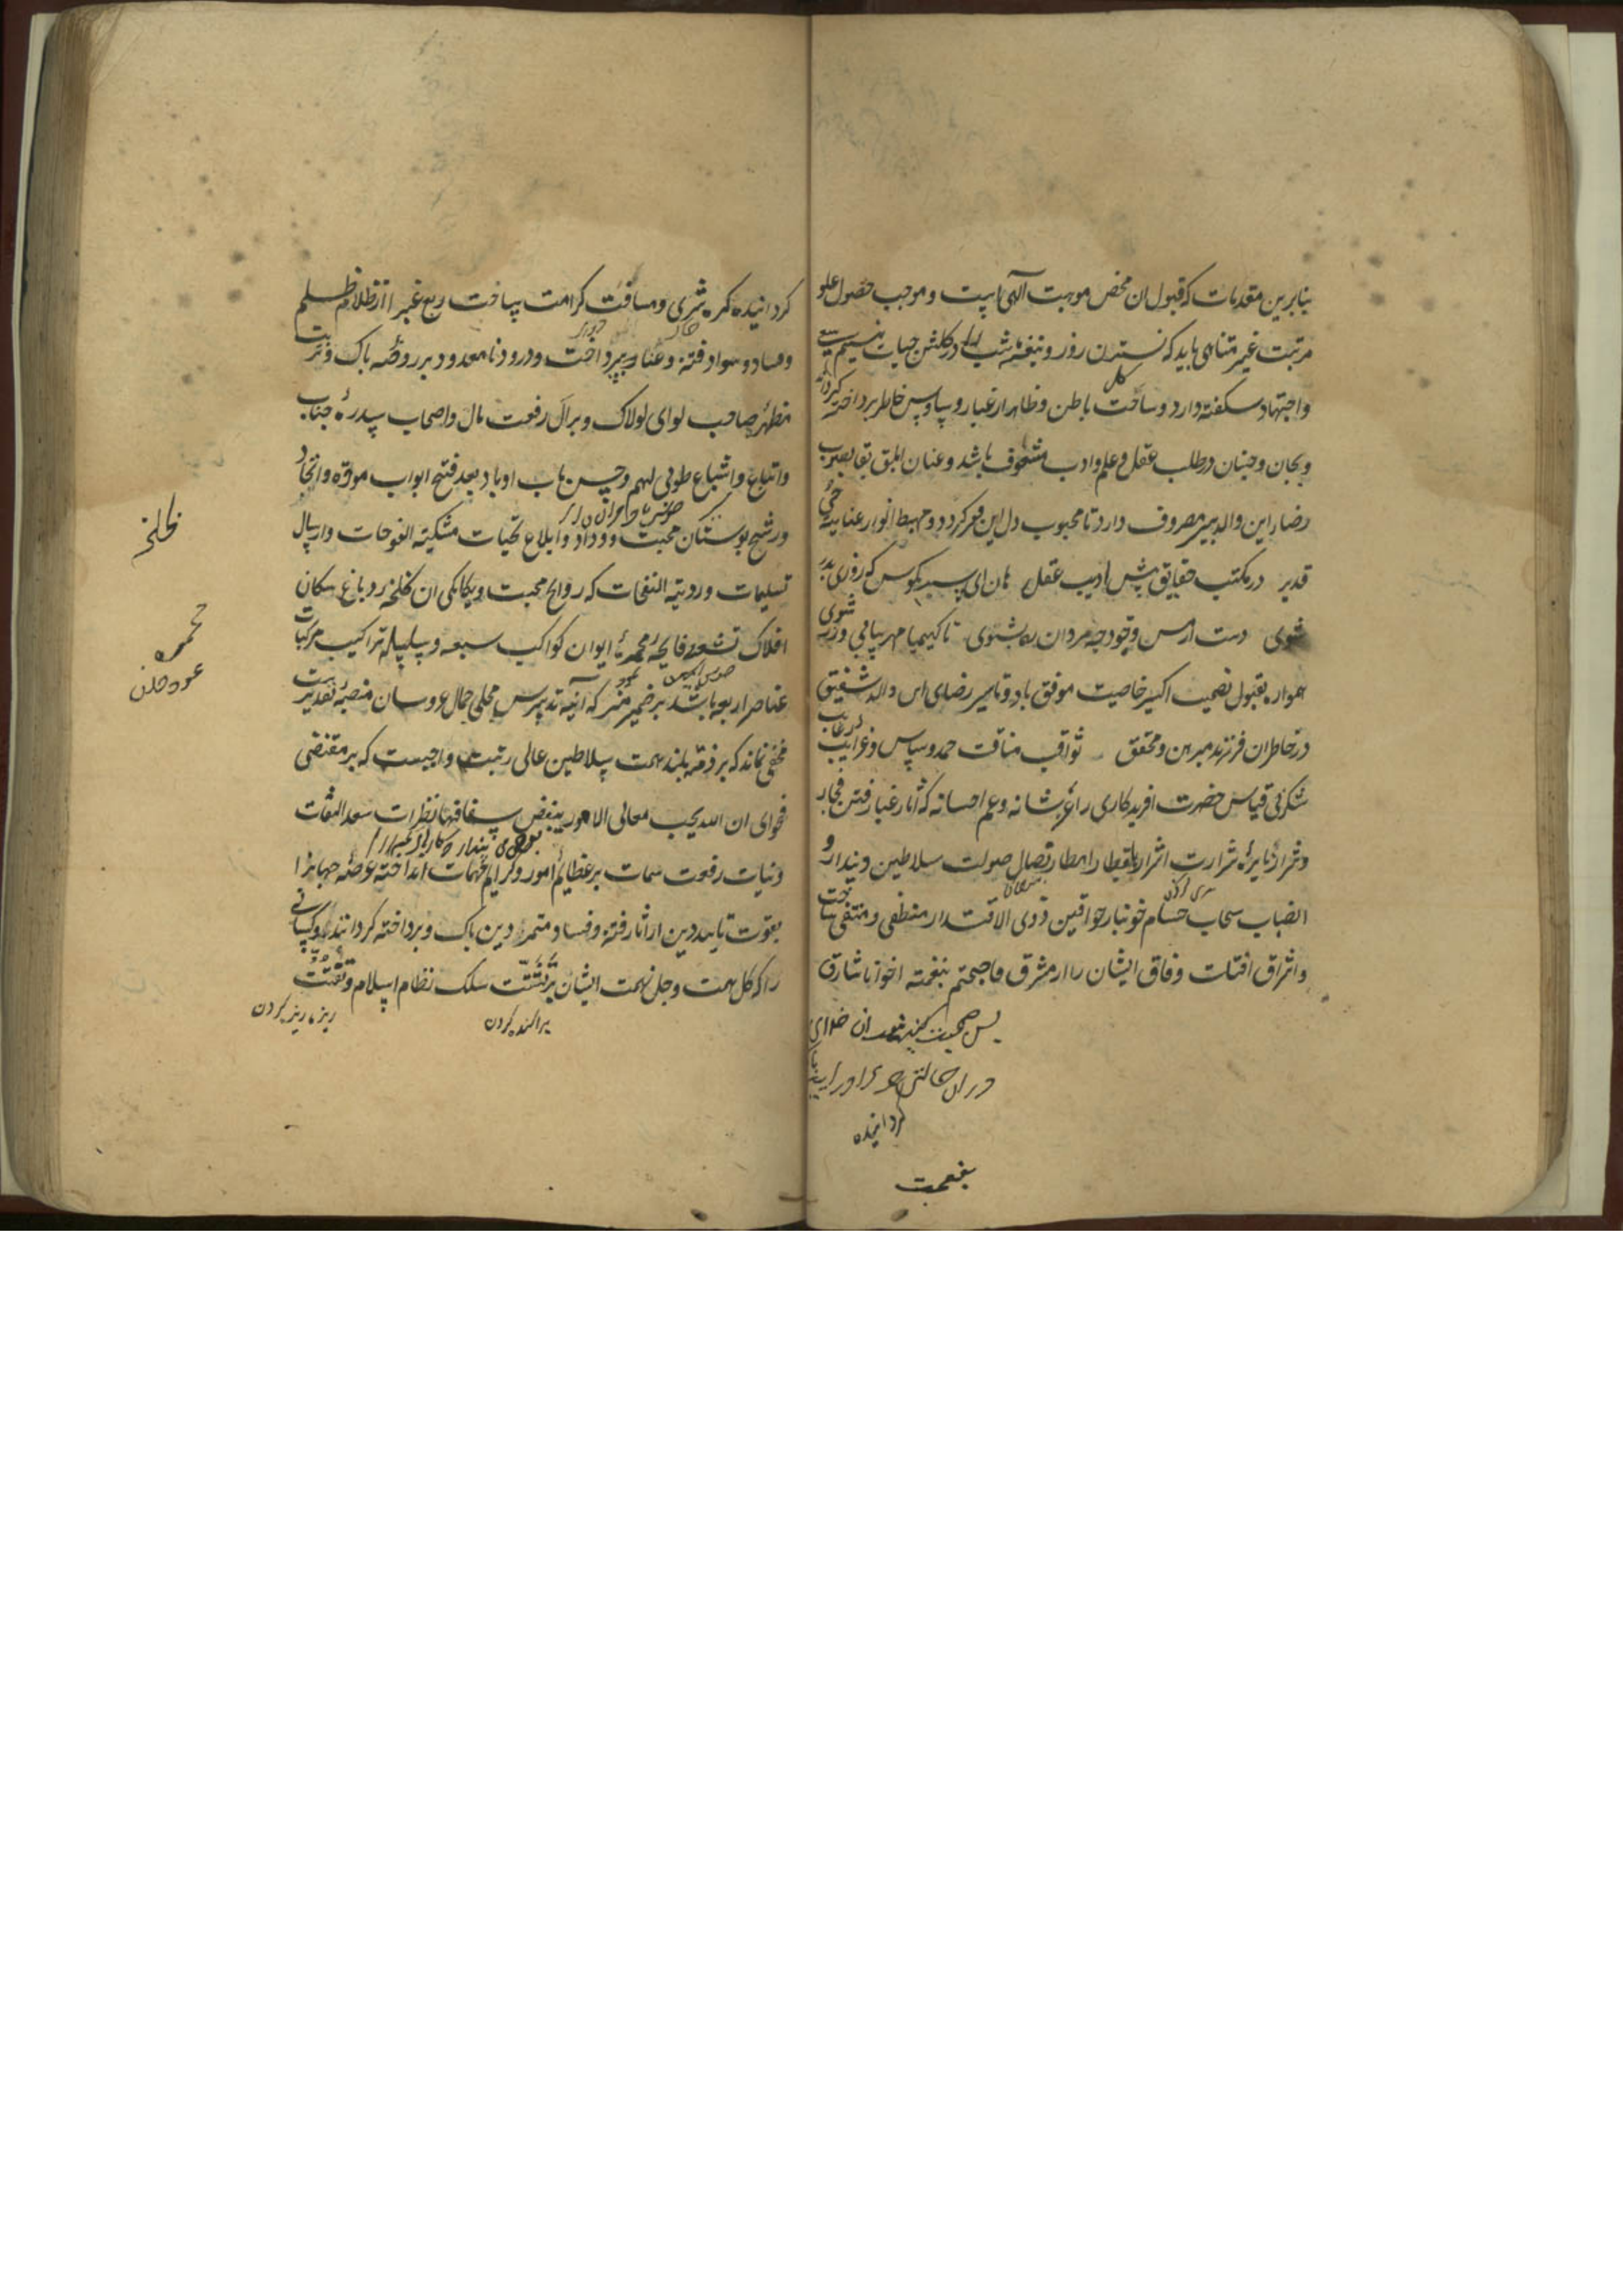 بنابرین مقدمات که قبول ان محض موهبت آلهی است و موجب حصول علو
مرتبت غیر متناهی باید که نسترن روز و بنفشه شب را در کلشن حیات بنسیم سعی
واجتهاد شکفته دارد و ساحت باطن و ظاهر از غبار وساوس خاطر پرداخته
کل
کرداند
و بجان و جنان در طلب عقل و علم و ادب مشعوف باشد و عنان ابلق بقا بصوب
رضا این والد پیر مصروف دارد تا محبوب دل این فقیر کردد و مهبط انوار عنایت حی
قدیر در مکتب حقایق پیش ادیب عقل هان ای پسر بکوش که روزی پدر
شوی دست از مس وجود چو مردان ره بشوی تا کیمیا مهر بیابی و زر شوی
همواره بقبول نصیحت اکسیر خاصیت موفق باد و تاثیر رضای این والد شفیق
در خاطر ان فرزند مبرهن و محقق ثواقب مناقب حمد و سپاس و غرایب رغایب
شکر بی قیاس حضرت افریدکاری را عز شانه و عم احسانه که آثار غبار فتن فجار
و شرار نایره شرارت اشرار بقطار امطار اتصال صولت سلاطین دیندار و
انصباب سحاب حسام خونبار خواقین ذوی الاقتدار منطفی و منتفی ساخت
و اشراق افتاب وفاق ایشان را از مشرق فاصبحتم بنعمته اخوانا شارق
پس صحبت
کردانیده
بنعمت
کردانیده کره ثری و مسافت کرامت ساخت ربع غبرا از ظلام ظلم
و فساد و سواد فتنه و عناد بپرداخت و درود نامعدود بر روضه پاک و تربت
مطهر صاحب لوای لولاک و بر آل رفعت مآل و اصحاب سدره جناب
و اتباع و اشیاع طوبی لهم و حسن مآب او باد بعد فتح ابواب موده و اتحاد
و رشح بوستان محبت و وداد و ابلاغ تحیات مشکیة الفوحات و ارسال
تسلیمات وردیة النفحات که روایح محبت و یکانکی ان لخلخه دماغ سکان
افلاک تسعه و فایحه محمره ایوان کواکب سبعه و سلسله تراکیب مرکبات
عناصر اربعه باشد بر ضمیر منیر که آینه تدبیرش مجلی جمال عروسان منصه تقدیر است
مخفی نماند که بر ذمه بلند همت سلاطین عالی رتبت واجبست که بر مقتضی
فحوای ان الله یحب معالی الامور و یبغض سفسافها نظرات سعد الثقات
و نیات رفعت سمات بر عظایم امور و کرایم مهمات انداخته عرصه جهانرا
بقوت تایید دین از اثار فتنه و فساد متمردین پاک و پرداخته کردانند و کسانی
را که کل همت و جل نهمت ایشان بر تشتت سلک نظام اسلام و تفتت
پراکنده کردن
ریزه ریزه کردن
لخلخه
محمره
عودسوز